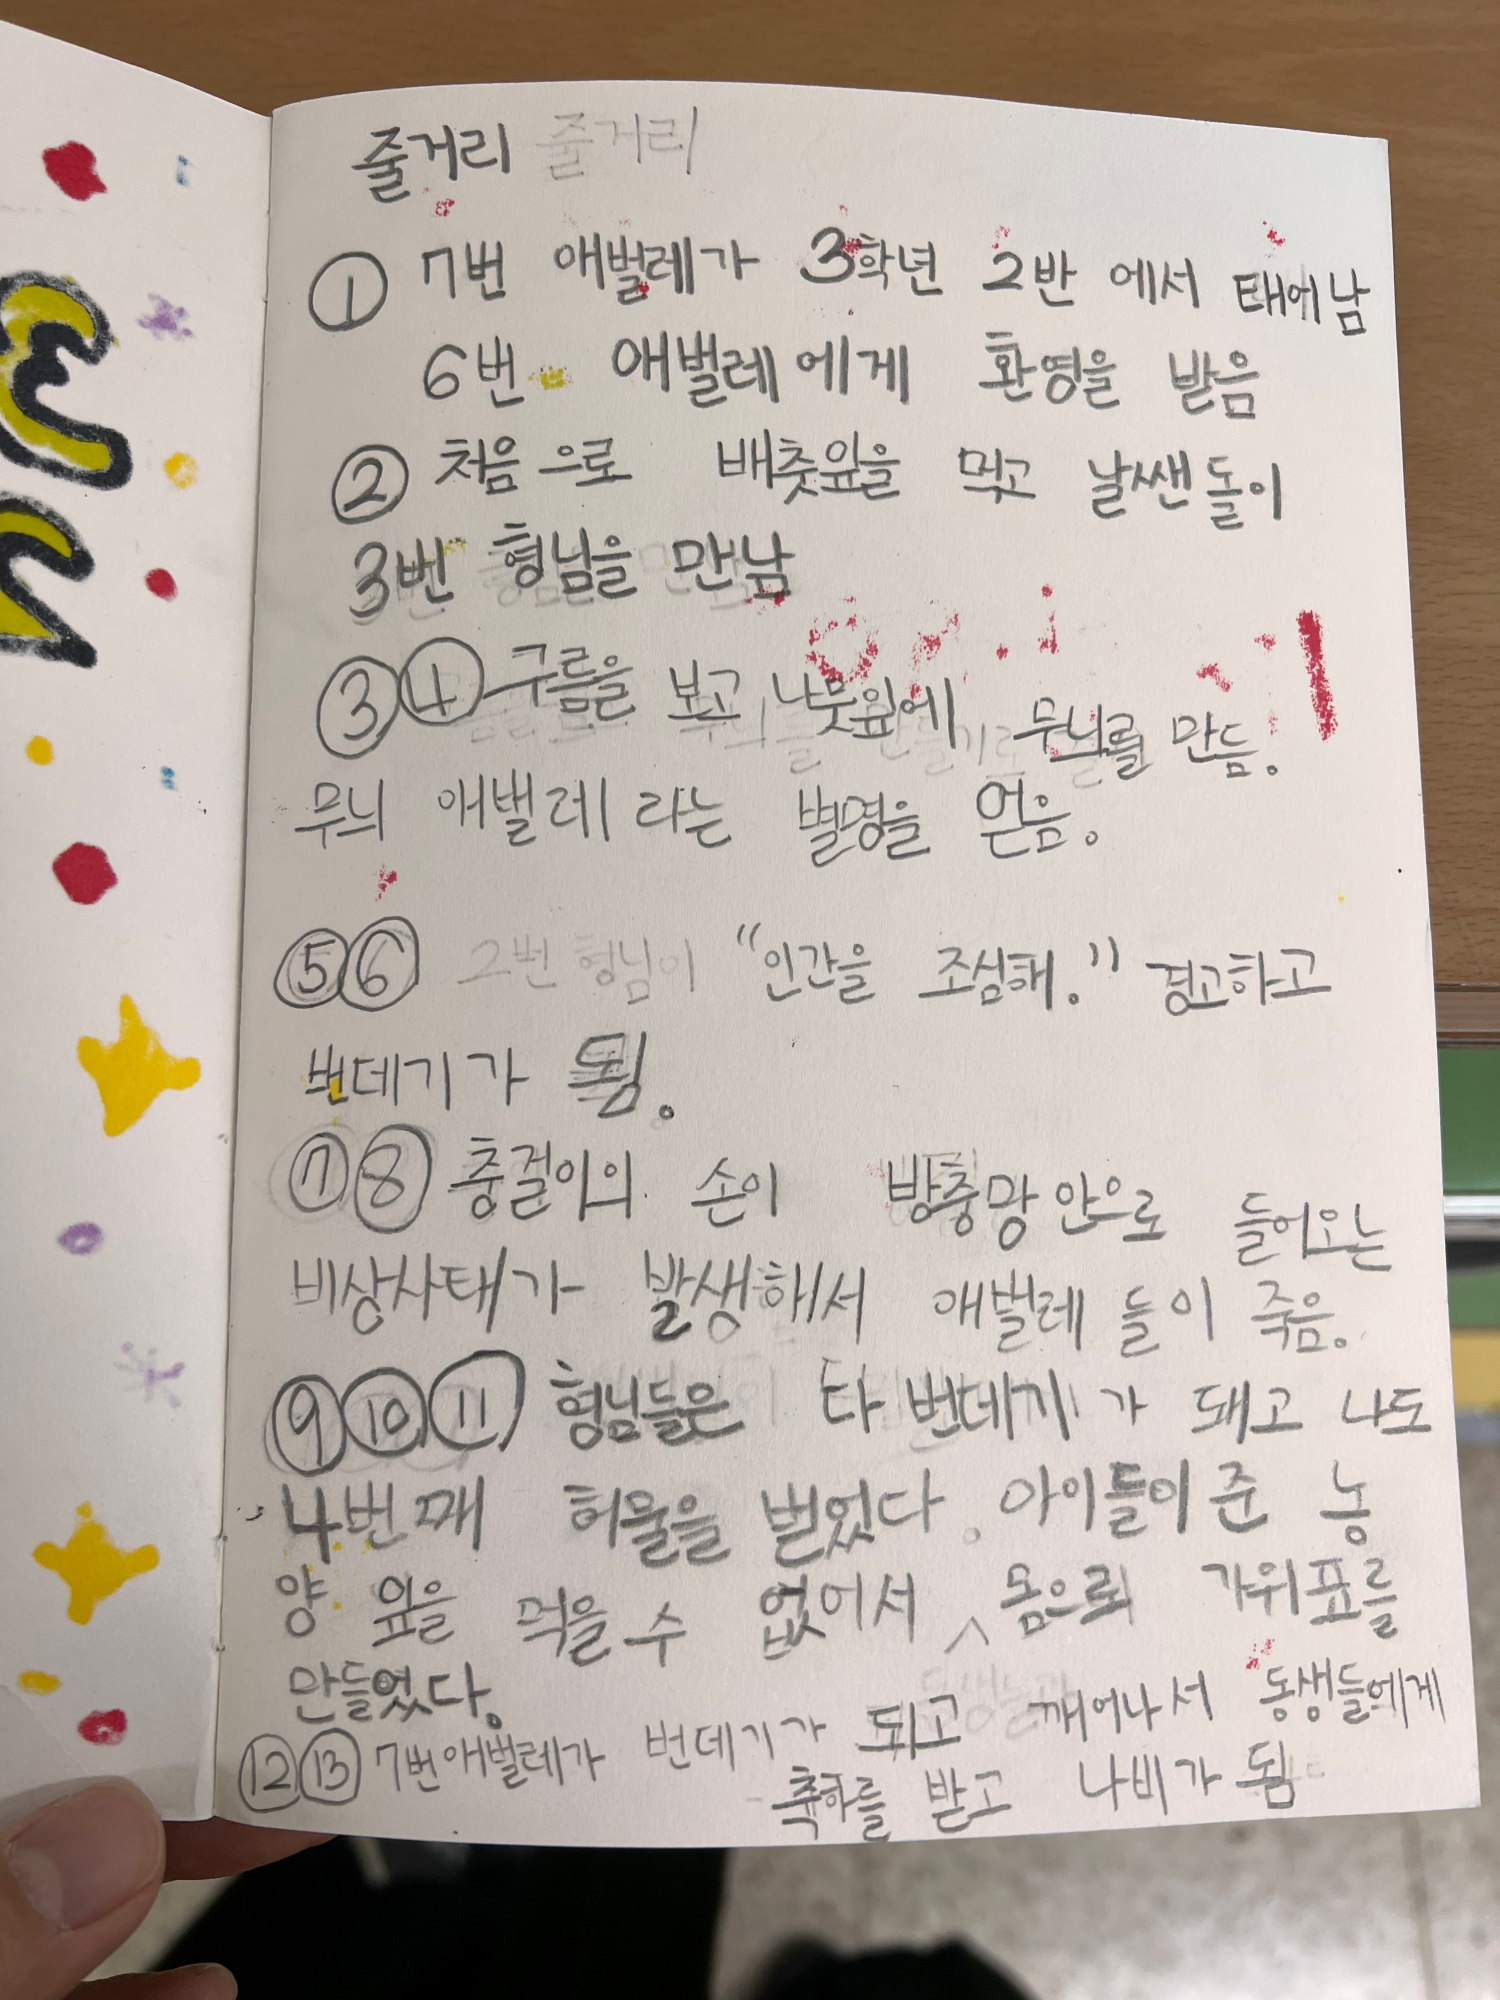 줄거리 줄거리
① 7번 애벌레가 3학년 2반 에서 태어남
6번 애벌레에게 환영을 받음
② 처음으로 배춧잎을 먹고 날쌘돌이
3번 형님을 만남
③④ 구름을 보고 나뭇잎에 무늬를 만듬.
무늬 애벌레라는 별명을 얻음.
⑤⑥ 2번 형님이 "인간을 조심해." 경고하고
번데기가 됨.
⑦⑧ 충걸이의 손이 방충망 안으로 들어오는
비상사태가 발생해서 애벌레들이 죽음.
⑨⑩⑪ 형님들은 다 번데기가 돼고 나도
4번째 허물을 벋었다. 아이들이 준 농
양 잎을 먹을 수 없어서 몸으로 가위표를
만들었다.
⑫⑬ 7번애벌레가 번데기가 되고 깨어나서 동생들에게
축하를 받고 나비가 됨